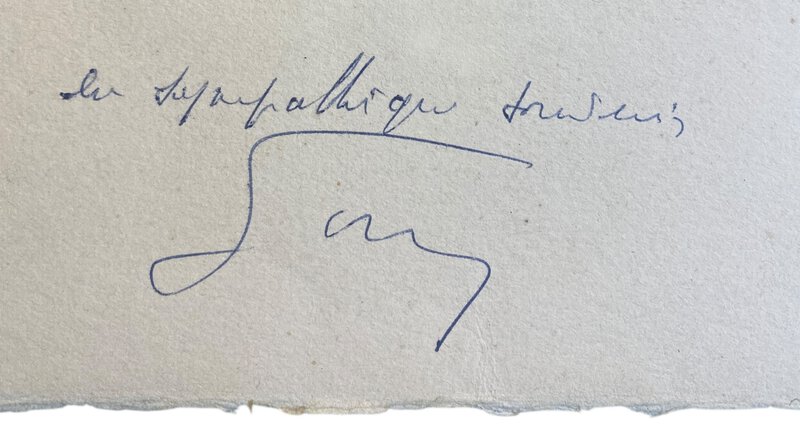 En sympathique souvenir